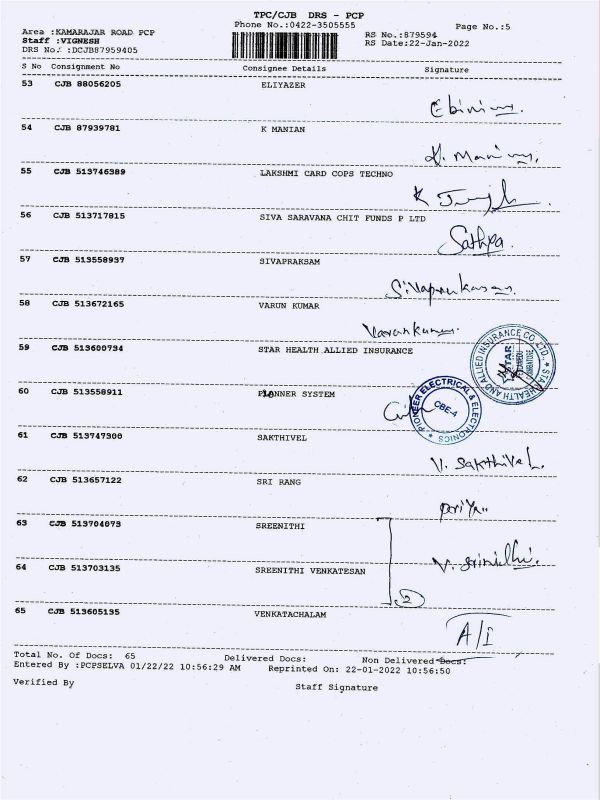 TPC/CJB DRS - PCP
Phone No.:0422-3505555
Page No.:5
Area :KAMARAJAR ROAD PCP
Staff :VIGNESH
DRS No.: :DCJB87959405
RS No.:879594
RS Date:22-Jan-2022
S No Consignment No Consignee Details Signature
53 CJB 88056205 ELIYAZER
54 CJB 87939781 K MANIAN
55 CJB 513746389 LAKSHMI CARD COPS TECHNO
56 CJB 513717815 SIVA SARAVANA CHIT FUNDS P LTD
Sathya.
57 CJB 513558937 SIVAPRAKSAM
Sivaprakasam.
58 CJB 513672165 VARUN KUMAR
Varunkumar.
59 CJB 513600734 STAR HEALTH ALLIED INSURANCE
STAR HEALTH AND ALLIED INSURANCE CO. LTD.
60 CJB 513558911 PLANNER SYSTEM
PIONEER ELECTRICAL & ELECTRONICS
CBE-4
61 CJB 513747300 SAKTHIVEL
V. Sakthivel.
62 CJB 513657122 SRI RANG
63 CJB 513704073 SREENITHI
V. Srinidhi.
64 CJB 513703135 SREENITHI VENKATESAN
2
65 CJB 513605135 VENKATACHALAM
A/I
Total No. Of Docs: 65 Delivered Docs: Non Delivered Docs:
Entered By :PCPSELVA 01/22/22 10:56:29 AM Reprinted On: 22-01-2022 10:56:50
Verified By Staff Signature